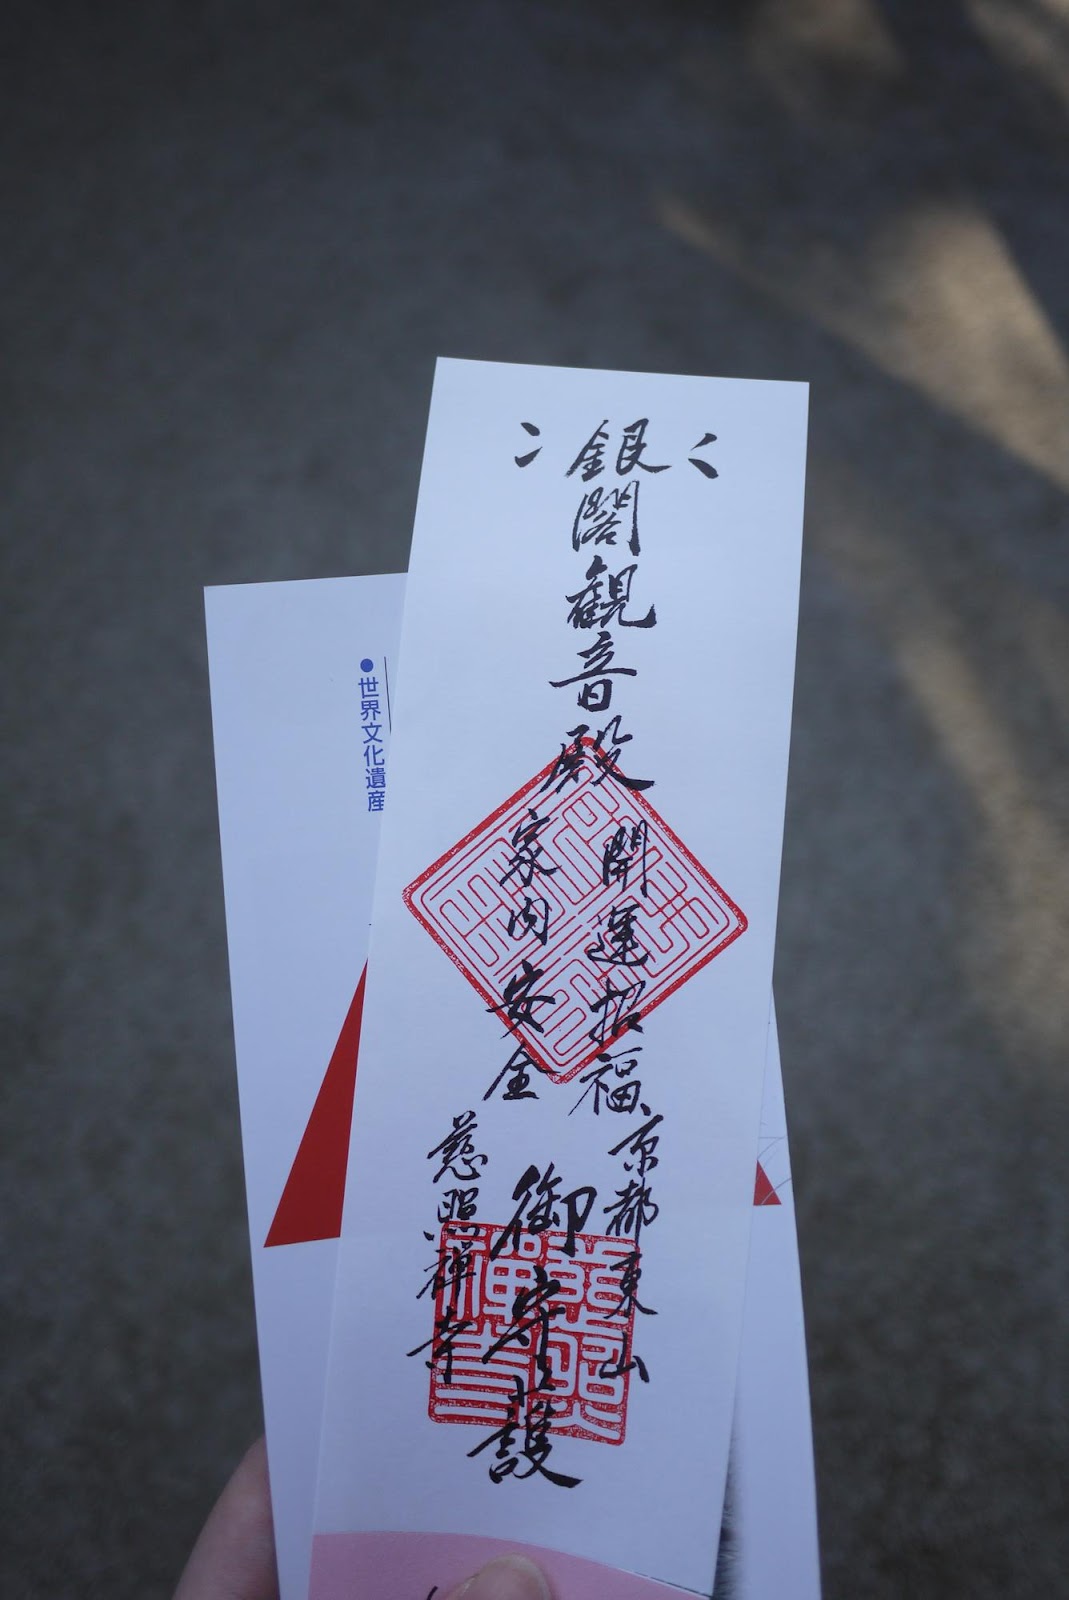 銀閣観音殿
開運招福
家内安全
京都東山
慈照禅寺
御守護
●世界文化遺産